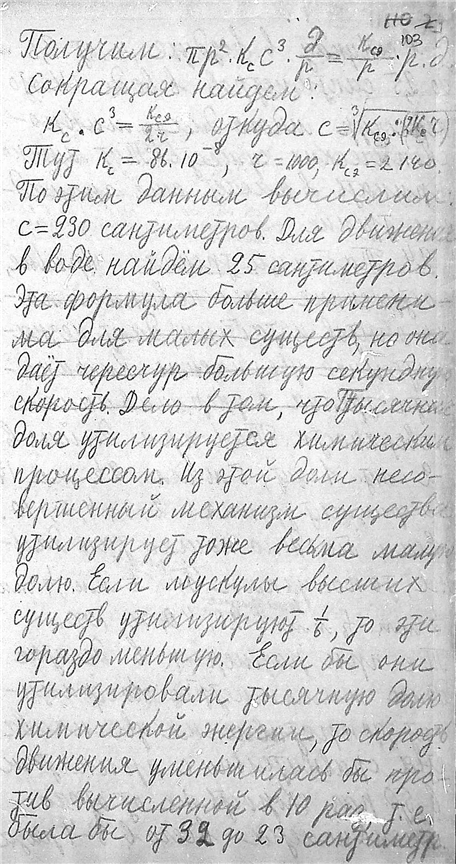 110 2
103
Получим: πр². Kс с³. ∂/р = Kсэ/р . р. д.
сокращая найдем:
Kс . с³ = Kсэ/2ч , откуда с = ³√Kсэ :
Тут Kс = 86.10⁻⁸, ч = 1000, Kсэ = 2140.
По этим данным вычислим:
с = 230 сантиметров. Для движения
в воде найдём 25 сантиметров.
Эта формула больше примени-
ма для малых существ, но она
даёт чересчур большую секундную
скорость. Дело в том, что тысячная
доля утилизируется химическим
процессом. Из этой доли несо-
вершенный механизм существа
утилизирует тоже весьма малую
долю. Если мускулы высших
существ утилизируют 1/6, то эти
гораздо меньшую. Если бы они
утилизировали тысячную долю
химической энергии, то скорость
движения уменьшилась бы про-
тив вычисленной в 10 раз, т. е.
была бы от 32 до 23 сантиметр.